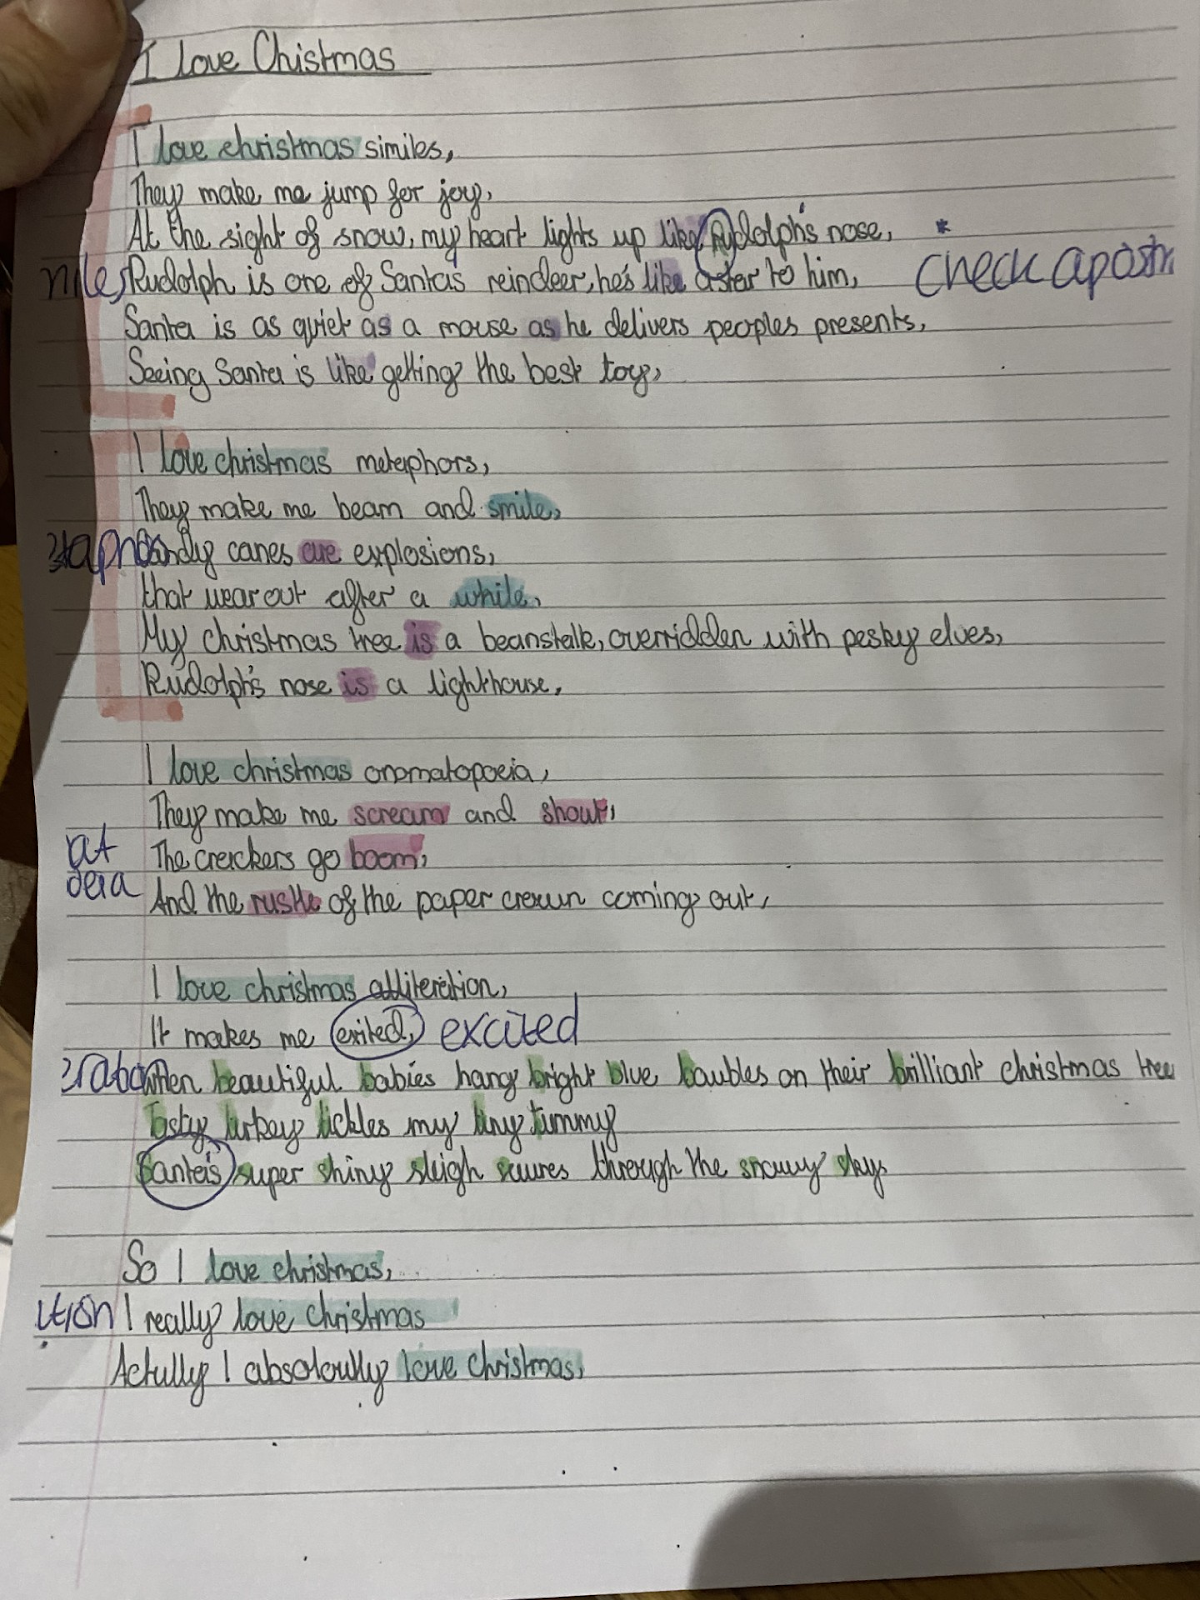 I love Chistmas
I love christmas similes,
They make me jump for joy,
At the sight of snow, my heart lights up like Rudolph's nose, *
niles Rudolph is one of Santa's reindeer, he's like a star to him, check apostr
Santa is as quiet as a mouse as he delivers peoples presents,
Seeing Santa is like getting the best toy,
I love christmas metaphors,
They make me beam and smile,
Candy canes are explosions,
that wear out after a while,
My christmas tree is a beanstalk, overridden with pesky elves,
Rudolph's nose is a lighthouse,
I love christmas onomatopoeia,
They make me scream and shout,
at The crackers go boom,
oeia And the rustle of the paper crown coming out,
I love christmas alliteration,
It makes me exited, excited
When beautiful babies hang bright blue baubles on their brilliant christmas tree
Tasty turkey tickles my tiny tummy
Santa's super shiny sleigh soures through the snowy sky
So I love christmas,
I really love christmas
Actully I absoloutly love christmas,